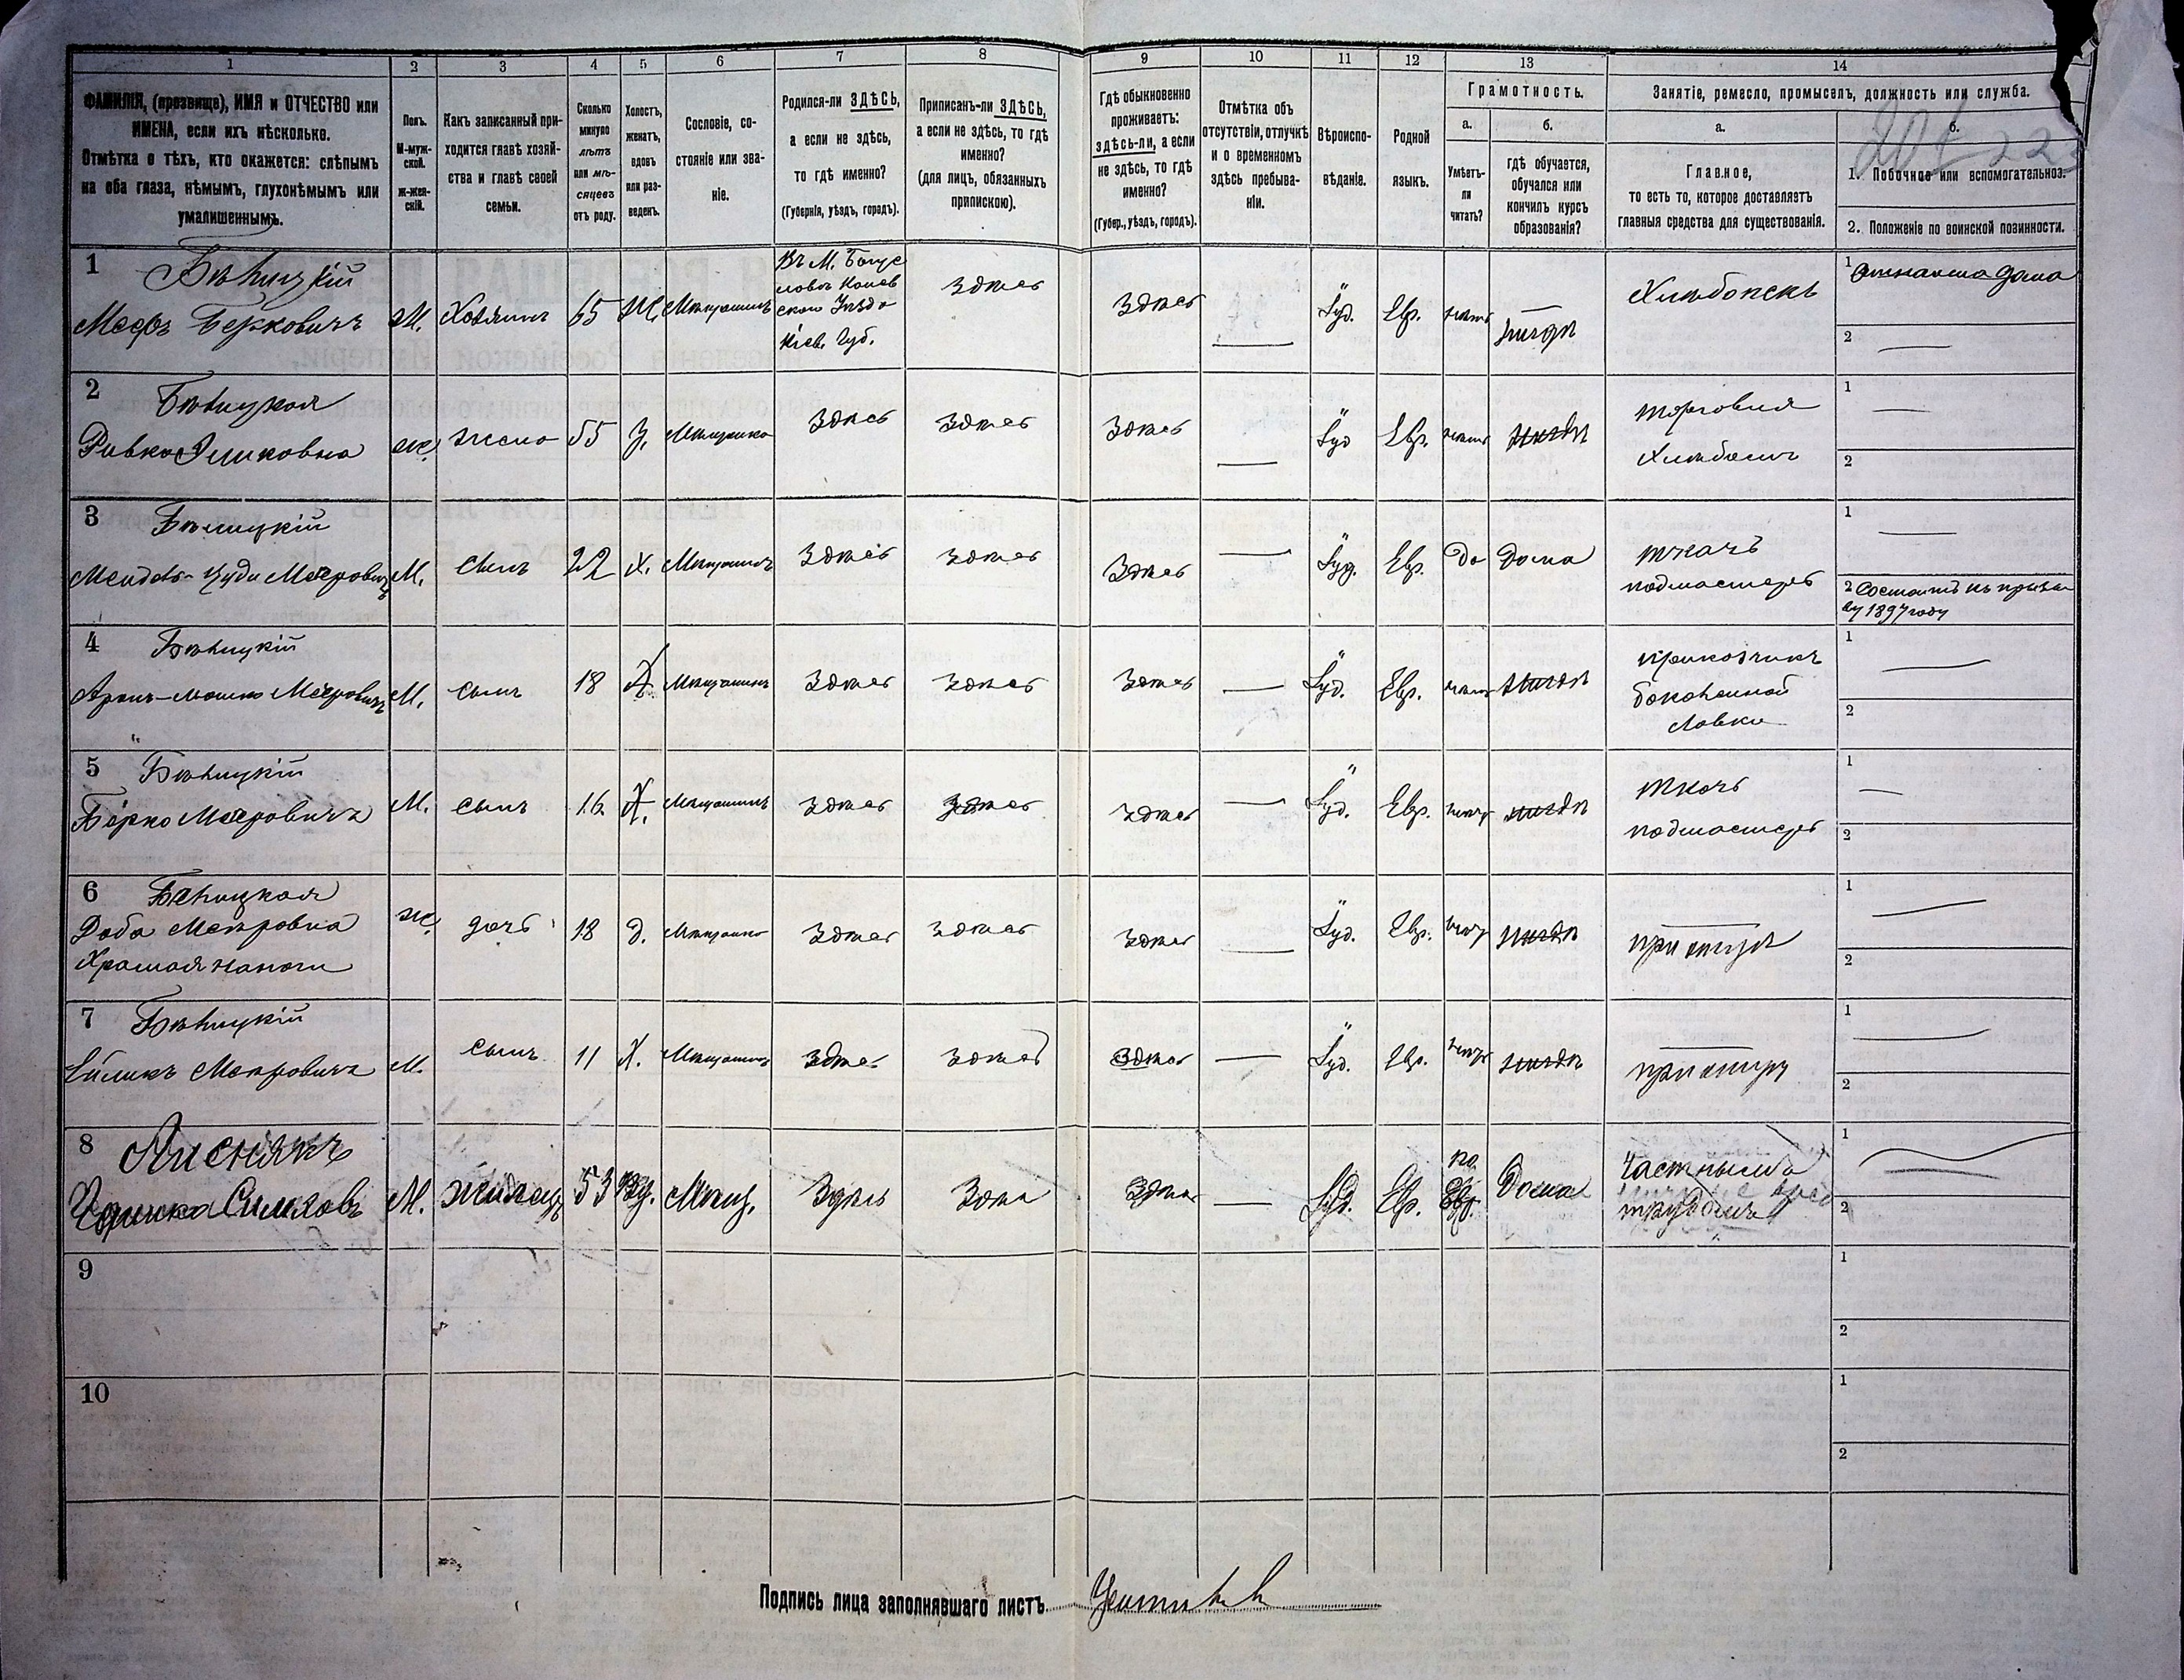 1 2 3 4 5 6 7 8 9 10 11 12 13 14
ФАМИЛІЯ, (прозвище), ИМЯ и ОТЧЕСТВО или
ИМЕНА, если ихъ нѣсколько.
Отмѣтка о тѣхъ, кто окажется: слѣпымъ
на оба глаза, нѣмымъ, глухонѣмымъ или
умалишеннымъ.
Полъ.
М-муж-
ской.
ж-жен-
скій.
Какъ записанный при-
ходится главѣ хозяй-
ства и главѣ своей
семьи.
Сколько
минуло
лѣтъ
или мѣ-
сяцевъ
отъ роду.
Холостъ,
женатъ,
вдовъ
или раз-
веденъ.
Сословіе, со-
стояніе или зва-
ніе.
Родился-ли ЗДѢСЬ,
а если не здѣсь,
то гдѣ именно?
(Губернія, уѣздъ, городъ).
Приписанъ-ли ЗДѢСЬ,
а если не здѣсь, то гдѣ
именно?
(для лицъ, обязанныхъ
припискою).
Гдѣ обыкновенно
проживаетъ:
здѣсь-ли, а если
не здѣсь, то гдѣ
именно?
(Губер., уѣздъ, городъ).
Отмѣтка объ
отсутствіи, отлучкѣ
и о временномъ
здѣсь пребыва-
ніи.
Вѣроиспо-
вѣданіе.
Родной
языкъ.
Грамотность.
а.
Умѣетъ-
ли
читать?
б.
гдѣ обучается,
обучался или
кончилъ курсъ
образованія?
Занятіе, ремесло, промыселъ, должность или служба.
а.
Главное,
то есть то, которое доставляетъ
главныя средства для существованія.
б.
1. Побочное или вспомогательное.
2. Положеніе по воинской повинности.
1 Бѣлицкій
Мееръ Берковичъ
М. Хозяинъ 65 Ж. Мѣщанинъ
Въ М. Богус
Кіев. Губ.
здѣсь здѣсь — Іуд. Евр. нѣтъ нигдѣ
Хлѣбопекъ
1 дома
2 —
2 Бѣлицкая
Ривка
ж. жена 55 З. Мѣщанка здѣсь здѣсь здѣсь — Іуд Евр. нѣтъ нигдѣ
торговля
Хлѣбомъ
1 —
2
3 Бѣлицкій
Мендель-Іуда Меѣровичъ
М. сынъ 22 Х. Мѣщанинъ здѣсь здѣсь здѣсь — Іуд. Евр. да дома
ткачъ
подмастеръ
1 —
2 Состоитъ къ призы
ву 1897 году
4 Бѣлицкій
Аронъ-мошко Меѣровичъ
М. сынъ 18 Х. Мѣщанинъ здѣсь здѣсь здѣсь — Іуд. Евр. нѣтъ нигдѣ
приказчикъ
бакалейной
лавки
1 —
2
5 Бѣлицкій
Берко Меѣровичъ
М. сынъ 16 Х. Мѣщанинъ здѣсь здѣсь здѣсь — Іуд. Евр. нѣтъ нигдѣ
ткачъ
подмастеръ
1 —
2
6 Бѣлицкая
Доба Меѣровна
Хромая на ноги
ж. дочь 18 д. Мѣщанка здѣсь здѣсь здѣсь — Іуд. Евр. нѣтъ нигдѣ
при отцѣ
1 —
2
7 Бѣлицкій
Меѣровичъ
М. сынъ 11 Х. Мѣщанинъ здѣсь здѣсь здѣсь — Іуд. Евр. нѣтъ нигдѣ
при отцу
1 —
2
8 Лиснякъ
М. жилецъ 53 Вд. Мѣщ. Здѣсь Здѣсь Здѣсь — Іуд. Евр.
по
Евр.
Дома
частнымъ
трудомъ
1 —
2
9
1
2
10
1
2
Подпись лица заполнявшаго листъ